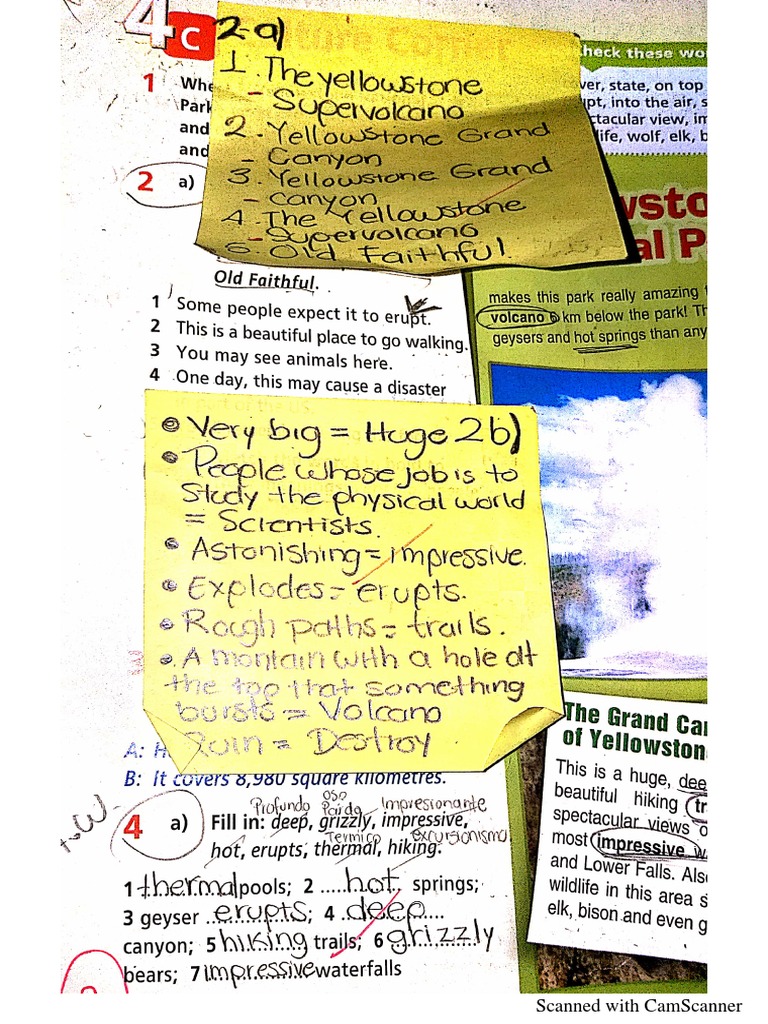 4 c Culture Corner
2-a)
1. The yellowstone
- Supervolcano
2. Yellowstone Grand
- Canyon
3. Yellowstone Grand
- canyon
4. The Yellowstone
- Supervolcano
5. Old Faithful.
Check these wo
ver, state, on top
upt, into the air, s
ctacular view, im
life, wolf, elk, b
1 Whe
Park
and
and
2 a)
wsto
al P
Old Faithful.
1 Some people expect it to erupt.
2 This is a beautiful place to go walking.
3 You may see animals here.
4 One day, this may cause a disaster
makes this park really amazing
volcano 6 km below the park! Th
geysers and hot springs than any
Very big = Huge 2b)
People whose job is to
study the physical world
= Scientists.
Astonishing = impressive.
Explodes = erupts.
Rough paths = trails.
A montain with a hole at
the top that something
bursts = Volcano
Ruin = Destroy
A: H
B: It covers 8,980 square kilometres.
The Grand Ca
of Yellowston
This is a huge, dee
beautiful hiking tr
spectacular views o
most impressive w
and Lower Falls. Als
wildlife in this area s
elk, bison and even g
Profundo oso Pardo Impresionante
4 a) Fill in: deep, grizzly, impressive,
Termico excursionismo
hot, erupts, thermal, hiking.
1 thermal pools; 2 ..... hot .. springs;
3 geyser erupts; 4 deep
canyon; 5 hiking trails; 6 grizzly
bears; 7 impressive waterfalls
Scanned with CamScanner